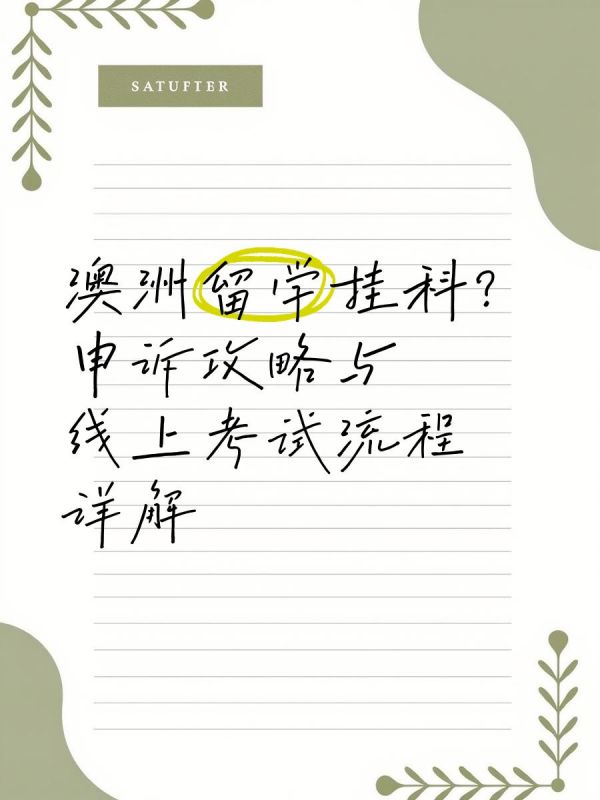 SATUFTER
澳洲留学挂科?
申诉攻略与
线上考试流程
详解